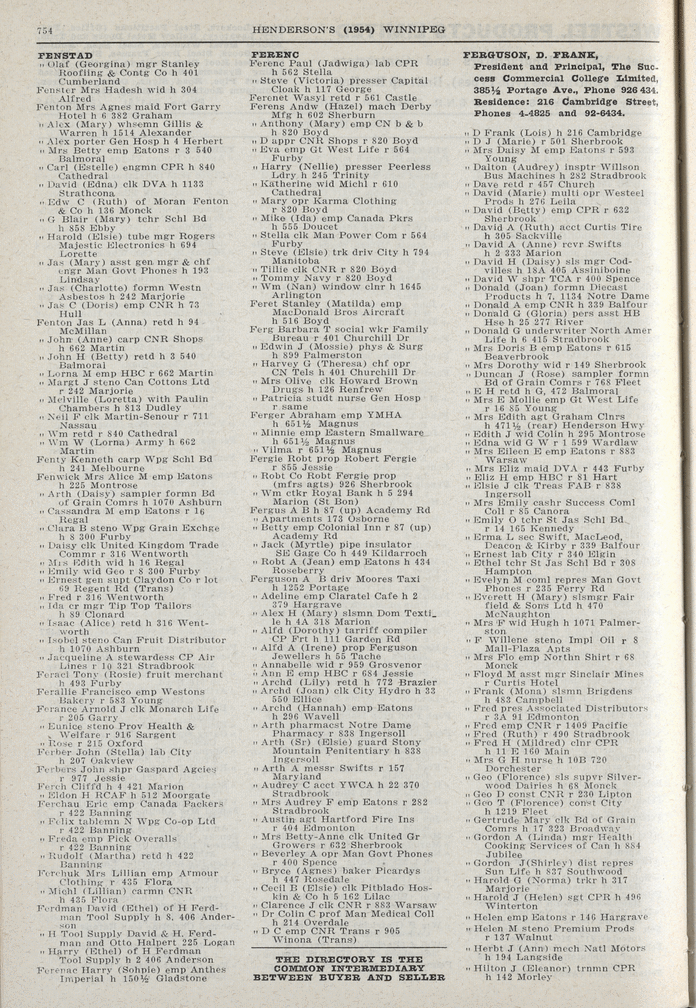 754
HENDERSON'S (1954) WINNIPEG
FENSTAD
" Olaf (Georgina) mgr Stanley
Roofiing & Contg Co h 401
Cumberland
Fenster Mrs Hadesh wid h 304
Alfred
Fenton Mrs Agnes maid Fort Garry
Hotel h 6 382 Graham
" Alex (Mary) whsemn Gillis &
Warren h 1514 Alexander
" Alex porter Gen Hosp h 4 Herbert
" Mrs Betty emp Eatons r 3 540
Balmoral
" Carl (Estelle) engmn CPR h 840
Cathedral
" David (Edna) clk DVA h 1133
Strathcona
" Edw C (Ruth) of Moran Fenton
& Co h 136 Monck
" G Blair (Mary) tchr Schl Bd
h 858 Ebby
" Harold (Elsie) tube mgr Rogers
Majestic Electronics h 694
Lorette
" Jas (Mary) asst gen mgr & chf
engr Man Govt Phones h 193
Lindsay
" Jas (Charlotte) formn Westn
Asbestos h 242 Marjorie
" Jas C (Doris) emp CNR h 73
Hull
Fenton Jas L (Anna) retd h 94
McMillan
" John (Anne) carp CNR Shops
h 662 Martin
" John H (Betty) retd h 3 540
Balmoral
" Lorna M emp HBC r 662 Martin
" Margt J steno Can Cottons Ltd
r 242 Marjorie
" Melville (Loretta) with Paulin
Chambers h 813 Dudley
" Nell F clk Martin-Senour r 711
Nassau
" Wm retd r 840 Cathedral
" Wm W (Lorna) Army h 662
Martin
Fenty Kenneth carp Wpg Schl Bd
h 241 Melbourne
Fenwick Mrs Alice M emp Eatons
h 225 Montrose
" Arth (Daisy) sampler formn Bd
of Grain Comrs h 1070 Ashburn
" Cassandra M emp Eatons r 16
Regal
" Clara B steno Wpg Grain Exchge
h 8 300 Furby
" Daisy clk United Kingdom Trade
Commr r 316 Wentworth
" Mrs Edith wid h 16 Regal
" Emily wid Geo r 8 300 Furby
" Ernest gen supt Claydon Co r lot
69 Regent Rd (Trans)
" Fred r 316 Wentworth
" Ida cr mgr Tip Top Tailors
h 89 Clonard
" Isaac (Alice) retd h 316 Went-
worth
" Isobel steno Can Fruit Distributor
h 1070 Ashburn
" Jacqueline A stewardess CP Air
Lines r 10 321 Stradbrook
Feraci Tony (Rosie) fruit merchant
h 493 Furby
Ferallie Francisco emp Westons
Bakery r 583 Young
Ferance Arnold J clk Monarch Life
r 205 Garry
" Eunice steno Prov Health &
Welfare r 916 Sargent
" Rose r 215 Oxford
Ferber John (Stella) lab City
h 207 Oakview
Ferbers John shpr Gaspard Agcies
r 977 Jessie
Ferch Cliffd h 4 421 Marion
" Eldon H RCAF h 512 Moorgate
Ferchau Eric emp Canada Packers
r 422 Banning
" Felix tablemn N Wpg Co-op Ltd
r 422 Banning
" Freda emp Pick Overalls
r 422 Banning
" Rudolf (Martha) retd h 422
Banning
Ferchuk Mrs Lillian emp Armour
Clothing r 435 Flora
" Michl (Lillian) carmn CNR
h 435 Flora
Ferdman David (Ethel) of H Ferd-
man Tool Supply h 8, 406 Ander-
son
" H Tool Supply David & H. Ferd-
man and Otto Halpert 225 Logan
" Harry (Ethel) of H Ferdman
Tool Supply h 2 406 Anderson
Ferenac Harry (Sohpie) emp Anthes
Imperial h 150½ Gladstone
FERENC
Ferenc Paul (Jadwiga) lab CPR
h 562 Stella
" Steve (Victoria) presser Capital
Cloak h 117 George
Ferenet Wasyl retd r 561 Castle
Ferens Andw (Hazel) mach Derby
Mfg h 602 Sherburn
" Anthony (Mary) emp CN b & b
h 820 Boyd
" D appr CNR Shops r 820 Boyd
" Eva emp Gt West Life r 564
Furby
" Harry (Nellie) presser Peerless
Ldry h 245 Trinity
" Katherine wid Michl r 610
Cathedral
" Mary opr Karma Clothing
r 820 Boyd
" Mike (Ida) emp Canada Pkrs
h 555 Doucet
" Stella clk Man Power Com r 564
Furby
" Steve (Elsie) trk driv City h 794
Manitoba
" Tillie clk CNR r 820 Boyd
" Tommy Navy r 820 Boyd
" Wm (Nan) window clnr h 1645
Arlington
Feret Stanley (Matilda) emp
MacDonald Bros Aircraft
h 516 Boyd
Ferg Barbara T social wkr Family
Bureau r 401 Churchill Dr
" Edwin J (Mossie) phys & Surg
h 899 Palmerston
" Harvey G (Theresa) chf opr
CN Tels h 401 Churchill Dr
" Mrs Olive clk Howard Brown
Drugs h 126 Renfrew
" Patricia studt nurse Gen Hosp
r same
Ferger Abraham emp YMHA
h 651½ Magnus
" Minnie emp Eastern Smallware
h 651½ Magnus
" Vilma r 651½ Magnus
Fergie Robt prop Robert Fergie
r 855 Jessie
" Robt Co Robt Fergie prop
(mfrs agts) 926 Sherbrook
" Wm ctkr Royal Bank h 5 294
Marion (St Bony)
Fergus A B h 87 (up) Academy Rd
" Apartments 173 Osborne
" Betty emp Colonial Inn r 87 (up)
Academy Rd
" Jack (Myrtle) pipe insulator
SE Gage Co h 449 Kildarroch
" Robt A (Jean) emp Eatons h 434
Roseberry
Ferguson A B driv Moores Taxi
h 1252 Portage
" Adeline emp Claratel Cafe h 2
379 Hargrave
" Alex H (Mary) slsmn Dom Texti_
le h 4A 318 Marion
" Alfd (Dorothy) tarriff compiler
CP Frt h 111 Garden Rd
" Alfd A (Irene) prop Ferguson
Jewellers h 55 Tache
" Annabelle wid r 959 Grosvenor
" Ann E emp HBC r 684 Jessie
" Archd (Lily) retd h 772 Brazier
" Archd (Joan) clk City Hydro h 33
550 Ellice
" Archd (Hannah) emp Eatons
h 296 Wavell
" Arth pharmacst Notre Dame
Pharmacy r 838 Ingersoll
" Arth (Sr) (Elsie) guard Stony
Mountain Penitentiary h 838
Ingersoll
" Arth A messr Swifts r 157
Maryland
" Audrey C acct YWCA h 22 370
Stradbrook
" Mrs Audrey F emp Eatons r 282
Stradbrook
" Austin agt Hartford Fire Ins
r 404 Edmonton
" Mrs Betty-Anne clk United Gr
Growers r 632 Sherbrook
" Beverley A opr Man Govt Phones
r 400 Spence
" Bryce (Agnes) baker Picardys
h 447 Rosedale
" Cecil B (Elsie) clk Pitblado Hos-
kin & Co h 5 162 Lilac
" Clarence J clk CNR r 883 Warsaw
" Dr Colin C prof Man Medical Coll
h 214 Overdale
" D C emp CNR Trans r 905
Winona (Trans)
THE DIRECTORY IS THE
COMMON INTERMEDIARY
BETWEEN BUYER AND SELLER
FERGUSON, D. FRANK,
President and Principal, The Suc-
cess Commercial College Limited,
385½ Portage Ave., Phone 926 434.
Residence: 216 Cambridge Street,
Phones 4-4825 and 92-6434.
" D Frank (Lois) h 216 Cambridge
" D J (Marie) r 501 Sherbrook
" Mrs Daisy M emp Eatons r 593
Young
" Dalton (Audrey) insptr Willson
Bus Machines h 282 Stradbrook
" Dave retd r 457 Church
" David (Marie) multi opr Westeel
Prods h 276 Leila
" David (Betty) emp CPR r 632
Sherbrook
" David A (Ruth) acct Curtis Tire
h 305 Sackville
" David A (Anne) rcvr Swifts
h 2 333 Marion
" David H (Daisy) sls mgr Cod-
villes h 18A 405 Assiniboine
" David W shpr TCA r 400 Spence
" Donald (Joan) formn Diecast
Products h 7, 1134 Notre Dame
" Donald A emp CNR h 339 Balfour
" Donald G (Gloria) pers asst HB
Hse h 25 277 River
" Donald G underwriter North Amer
Life h 6 415 Stradbrook
" Mrs Doris B emp Eatons r 615
Beaverbrook
" Mrs Dorothy wid r 149 Sherbrook
" Duncan J (Rose) sampler formn
Bd of Grain Comrs r 768 Fleet
" E H retd h G, 472 Balmoral
" Mrs E Mollie emp Gt West Life
r 16 85 Young
" Mrs Edith agt Graham Clnrs
h 471½ (rear) Henderson Hwy
" Edith J wid Colin h 295 Montrose
" Edna wid G W r 1 599 Wardlaw
" Mrs Eileen E emp Eatons r 883
Warsaw
" Mrs Eliz maid DVA r 443 Furby
" Eliz H emp HBC r 81 Hart
" Elsie J clk Treas FAB r 838
Ingersoll
" Mrs Emily cashr Success Coml
Coll r 85 Canora
" Emily O tchr St Jas Schl Bd
r 14 165 Kennedy
" Erma L sec Swift, MacLeod,
Deacon & Kirby r 339 Balfour
" Ernest lab City r 340 Elgin
" Ethel tchr St Jas Schl Bd r 308
Hampton
" Evelyn M coml repres Man Govt
Phones r 235 Ferry Rd
" Everett H (Mary) slsmgr Fair
field & Sons Ltd h 470
McNaughton
" Mrs F wid Hugh h 1071 Palmer-
ston
" F Willene steno Impl Oil r 8
Mall-Plaza Apts
" Mrs Flo emp Northn Shirt r 68
Monck
" Floyd M asst mgr Sinclair Mines
r Curtis Hotel
" Frank (Mona) slsmn Brigdens
h 483 Campbell
" Fred pres Associated Distributors
r 3A 91 Edmonton
" Fred emp CNR r 1409 Pacific
" Fred (Ruth) r 490 Stradbrook
" Fred H (Mildred) clnr CPR
h 11 E 160 Main
" Mrs G H nurse h 10B 720
Dorchester
" Geo (Florence) sls supvr Silver-
wood Dairies h 68 Monck
" Geo D const CNR r 230 Lipton
" Geo T (Florence) const City
h 1219 Fleet
" Gertrude Mary clk Bd of Grain
Comrs h 17 323 Broadway
" Gordon A (Linda) mgr Health
Cooking Services of Can h 884
Jubilee
" Gordon J(Shirley) dist repres
Sun Life h 837 Southwood
" Harold G (Norma) trkr h 317
Marjorie
" Harold J (Helen) sgt CPR h 496
Winterton
" Helen emp Eatons r 146 Hargrave
" Helen M steno Premium Prods
r 137 Walnut
" Herbt J (Ann) mech Natl Motors
h 194 Langside
" Hilton J (Eleanor) trnmn CPR
h 142 Morley